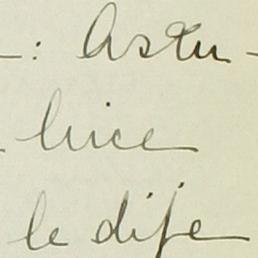 : Astu-
luce
le dife